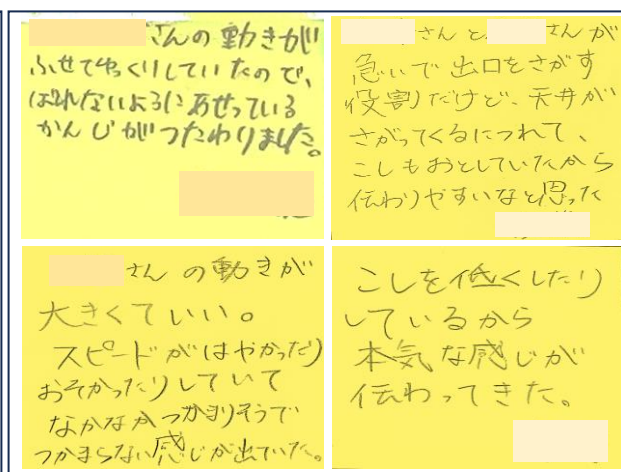 さんの動きが
ふせてゆっくりしていたので、
ばれないようにあせっている
かんじがつたわりました。
さんと さんが
急いで出口をさがす
役割だけど、天井が
さがってくるにつれて、
こしもおとしていたから
伝わりやすいなと思った
さんの動きが
大きくていい。
スピードがはやかったり
おそかったりしていて
なかなかつかまりそうで
つかまらない感じが出ていた。
こしを低くしたり
しているから
本気な感じが
伝わってきた。